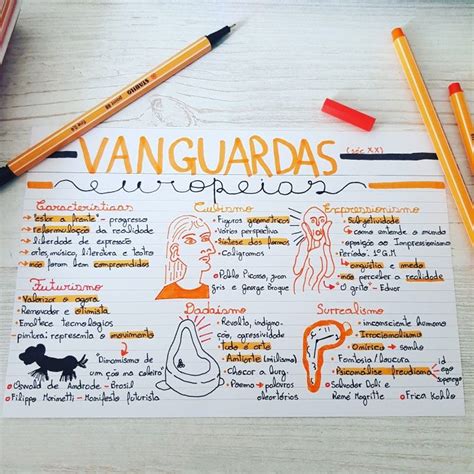 STABILO
VANGUARDAS
(séc XX)
europeias
Características
"estar a frente" - progresso
reformulação da realidade
liberdade de expressão
artes, música, literatura e teatro
não foram bem compreendidos
Cubismo
Figuras geométricas
Várias perspectiva
Síntese das formas
Caligramas
Pablo Picasso, Juan
gris e George Braque
Expressionismo
Subjetividade
como entende o mundo
oposição ao Impressionismo
Período: 1ª G.M
angústia e medo
não perceber a realidade
"O grito" - Edvar
Futurismo
Valorizar o agora.
Renovador e otimista
Enaltece tecnologias
pintura: representa o movimento
"Dinamismo de
um cão na coleira"
Oswald de Andrade - Brasil
Filippo Marinetti - Manifesto futurista
Dadaísmo
Revolta, indigna-
ção, agressividade
Tudo é arte
Antiarte (niilismo)
Chocar a burg.
Poema → palavras
aleatórias
Surrealismo
inconsciente humano
Irracionalismo
Onírico → sonho
Fantasia/loucura
Psicanálise freudiana
id
ego
superego
Salvador Dalí e
René Magritte
Frica Kahlo